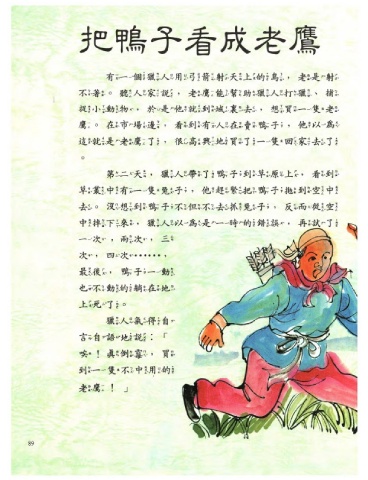 把鴨子看成老鷹
有一個獵人用弓箭射天上的鳥，老是射
不著。聽人家說，老鷹能幫助獵人打獵、捕
捉小動物，於是他就到城裏去，想買一隻老
鷹。在市場邊，看到有人在賣鴨子，他以為
這就是老鷹了，很高興地買了一隻回家去了
。
第二天，獵人帶了鴨子到草原上，看到
草叢中有一隻兔子，他趕緊把鴨子拋到空中
去。沒想到鴨子不但不去抓兔子，反而從空
中摔下來，獵人以為是一時的錯誤，再試了
一次，兩次，三
次，四次……，
最後，鴨子一動
也不動的躺在地
上死了。
獵人氣得自
言自語地說：「
唉！真倒霉，買
到一隻不中用的
老鷹！」
89